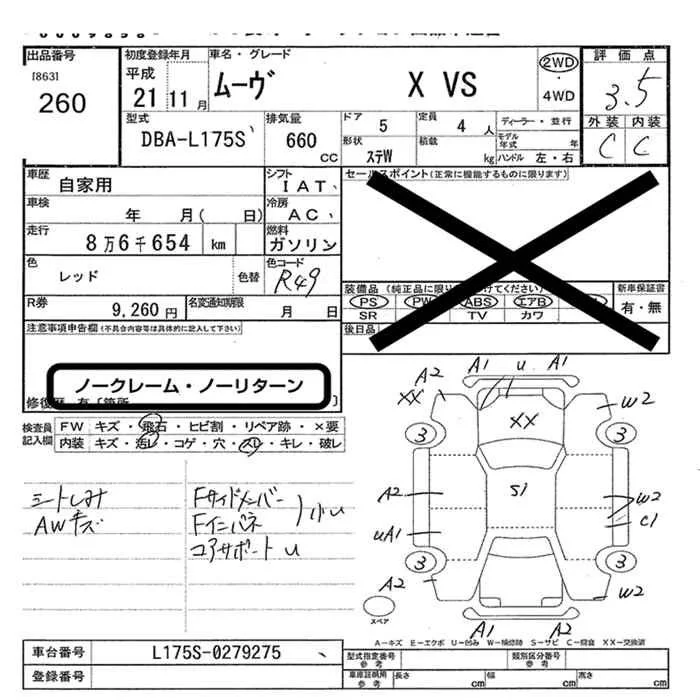 出品番号
[863]
260
初度登録年月
平成
21 11 月
車名・グレード
ムーヴ X VS
2WD
・
4WD
評価点
3.5
外装 内装
C C
型式
DBA-L175S
排気量
660
CC
ドア
5
定員
4 人
形状
ステW
積載
kg
ディーラー・並行
モデル年式 年
ハンドル 左・右
車歴
自家用
シフト
I A T
車検
年 月( 日)
冷房
A C
走行
8万6千654 km
燃料
ガソリン
色
レッド
色替
色コード
R49
R券
9,260 円
名変通知期限
月 日
セールスポイント(正常に機能するものに限ります)
装備品
PS PW ABS エアB
SR TV カワ
新車保証書
有・無
後日品
注意事項申告欄(不具合内容等は具体的に記入して下さい)
ノークレーム・ノーリターン
修復歴 有
検査員
記入欄
FW キズ・飛石・ヒビ割・リペア跡・×要
内装 キズ・汚レ・コゲ・穴・スレ・キレ・破レ
シートしみ
AWキズ
Fサイドメンバー
Fインパネ
コアサポートu
小u
A2 A1 u A1
XX w2
XX
3 3
A2 S1 w2
uA1 C1
3 3
A2 w2
A1 A2
スペア
A−キズ E−エクボ U−凹み W−補修跡 S−サビ C−腐食 XX−交換済
車台番号
L175S-0279275
登録番号
型式指定番号
参考
類別区分番号
参考
車庫証明用
参考
長さ cm
幅 cm
高さ cm